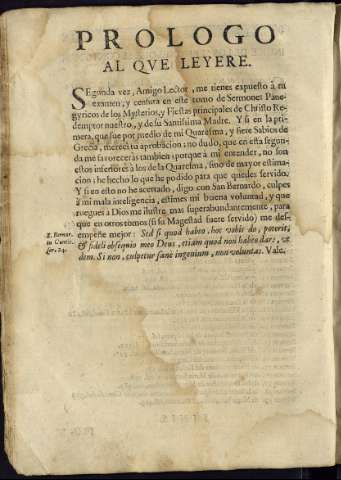 PROLOGO
AL QVE LEYERE.
SEgunda vez, Amigo Lector, me tienes expuesto à tu
examen, y censura en este tomo de Sermones Pane-
gyricos de los Mysterios, y Fiestas principales de Christo Re-
demptor nuestro, y de su Santissima Madre. Y si en la pri-
mera, que fue por medio de mi Quaresma, y siete Sabios de
Grecia, mereci tu aprobacion; no dudo, que en esta segun-
da me favoreceràs tambien; porque à mi entender, no son
estos inferiores à los de la Quaresma, sino de mayor estima-
cion; he hecho lo que he podido para que quedes servido.
Y si en esto no he acertado, digo con San Bernardo, culpes
à mi mala inteligencia, estimes mi buena voluntad, y que
ruegues à Dios me ilustre mas superabundantemente, para
que en otros tomos (si su Magestad fuere servido) me des-
empeñe mejor: Sed si quod habeo, hoc vobis do, poterit,
& fideli obsequio meo Deus, etiam quod non habeo dare, ve
dem. Si non, culpetur sanè ingenium, non voluntas. Vale.
S. Bernar.
in Cantic.
ser. 24.